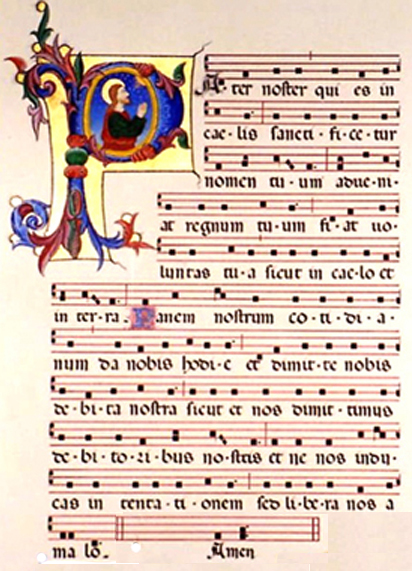 PA·ter noster qui es in
cae·lis sancti·fi·ce·tur
nomen tu·um adue·ni-
at regnum tu·um fi·at uo-
luntas tu·a sicut in cae·lo et
in ter·ra. Panem nostrum co·ti·di·a-
num da nobis hodi·e et dimit·te nobis
de·bi·ta nostra sicut et nos dimit·timus
de·bi·to·ri·bus no·stris et ne nos indu-
cas in tenta·ti·onem sed li·be·ra nos a
ma lo. Amen